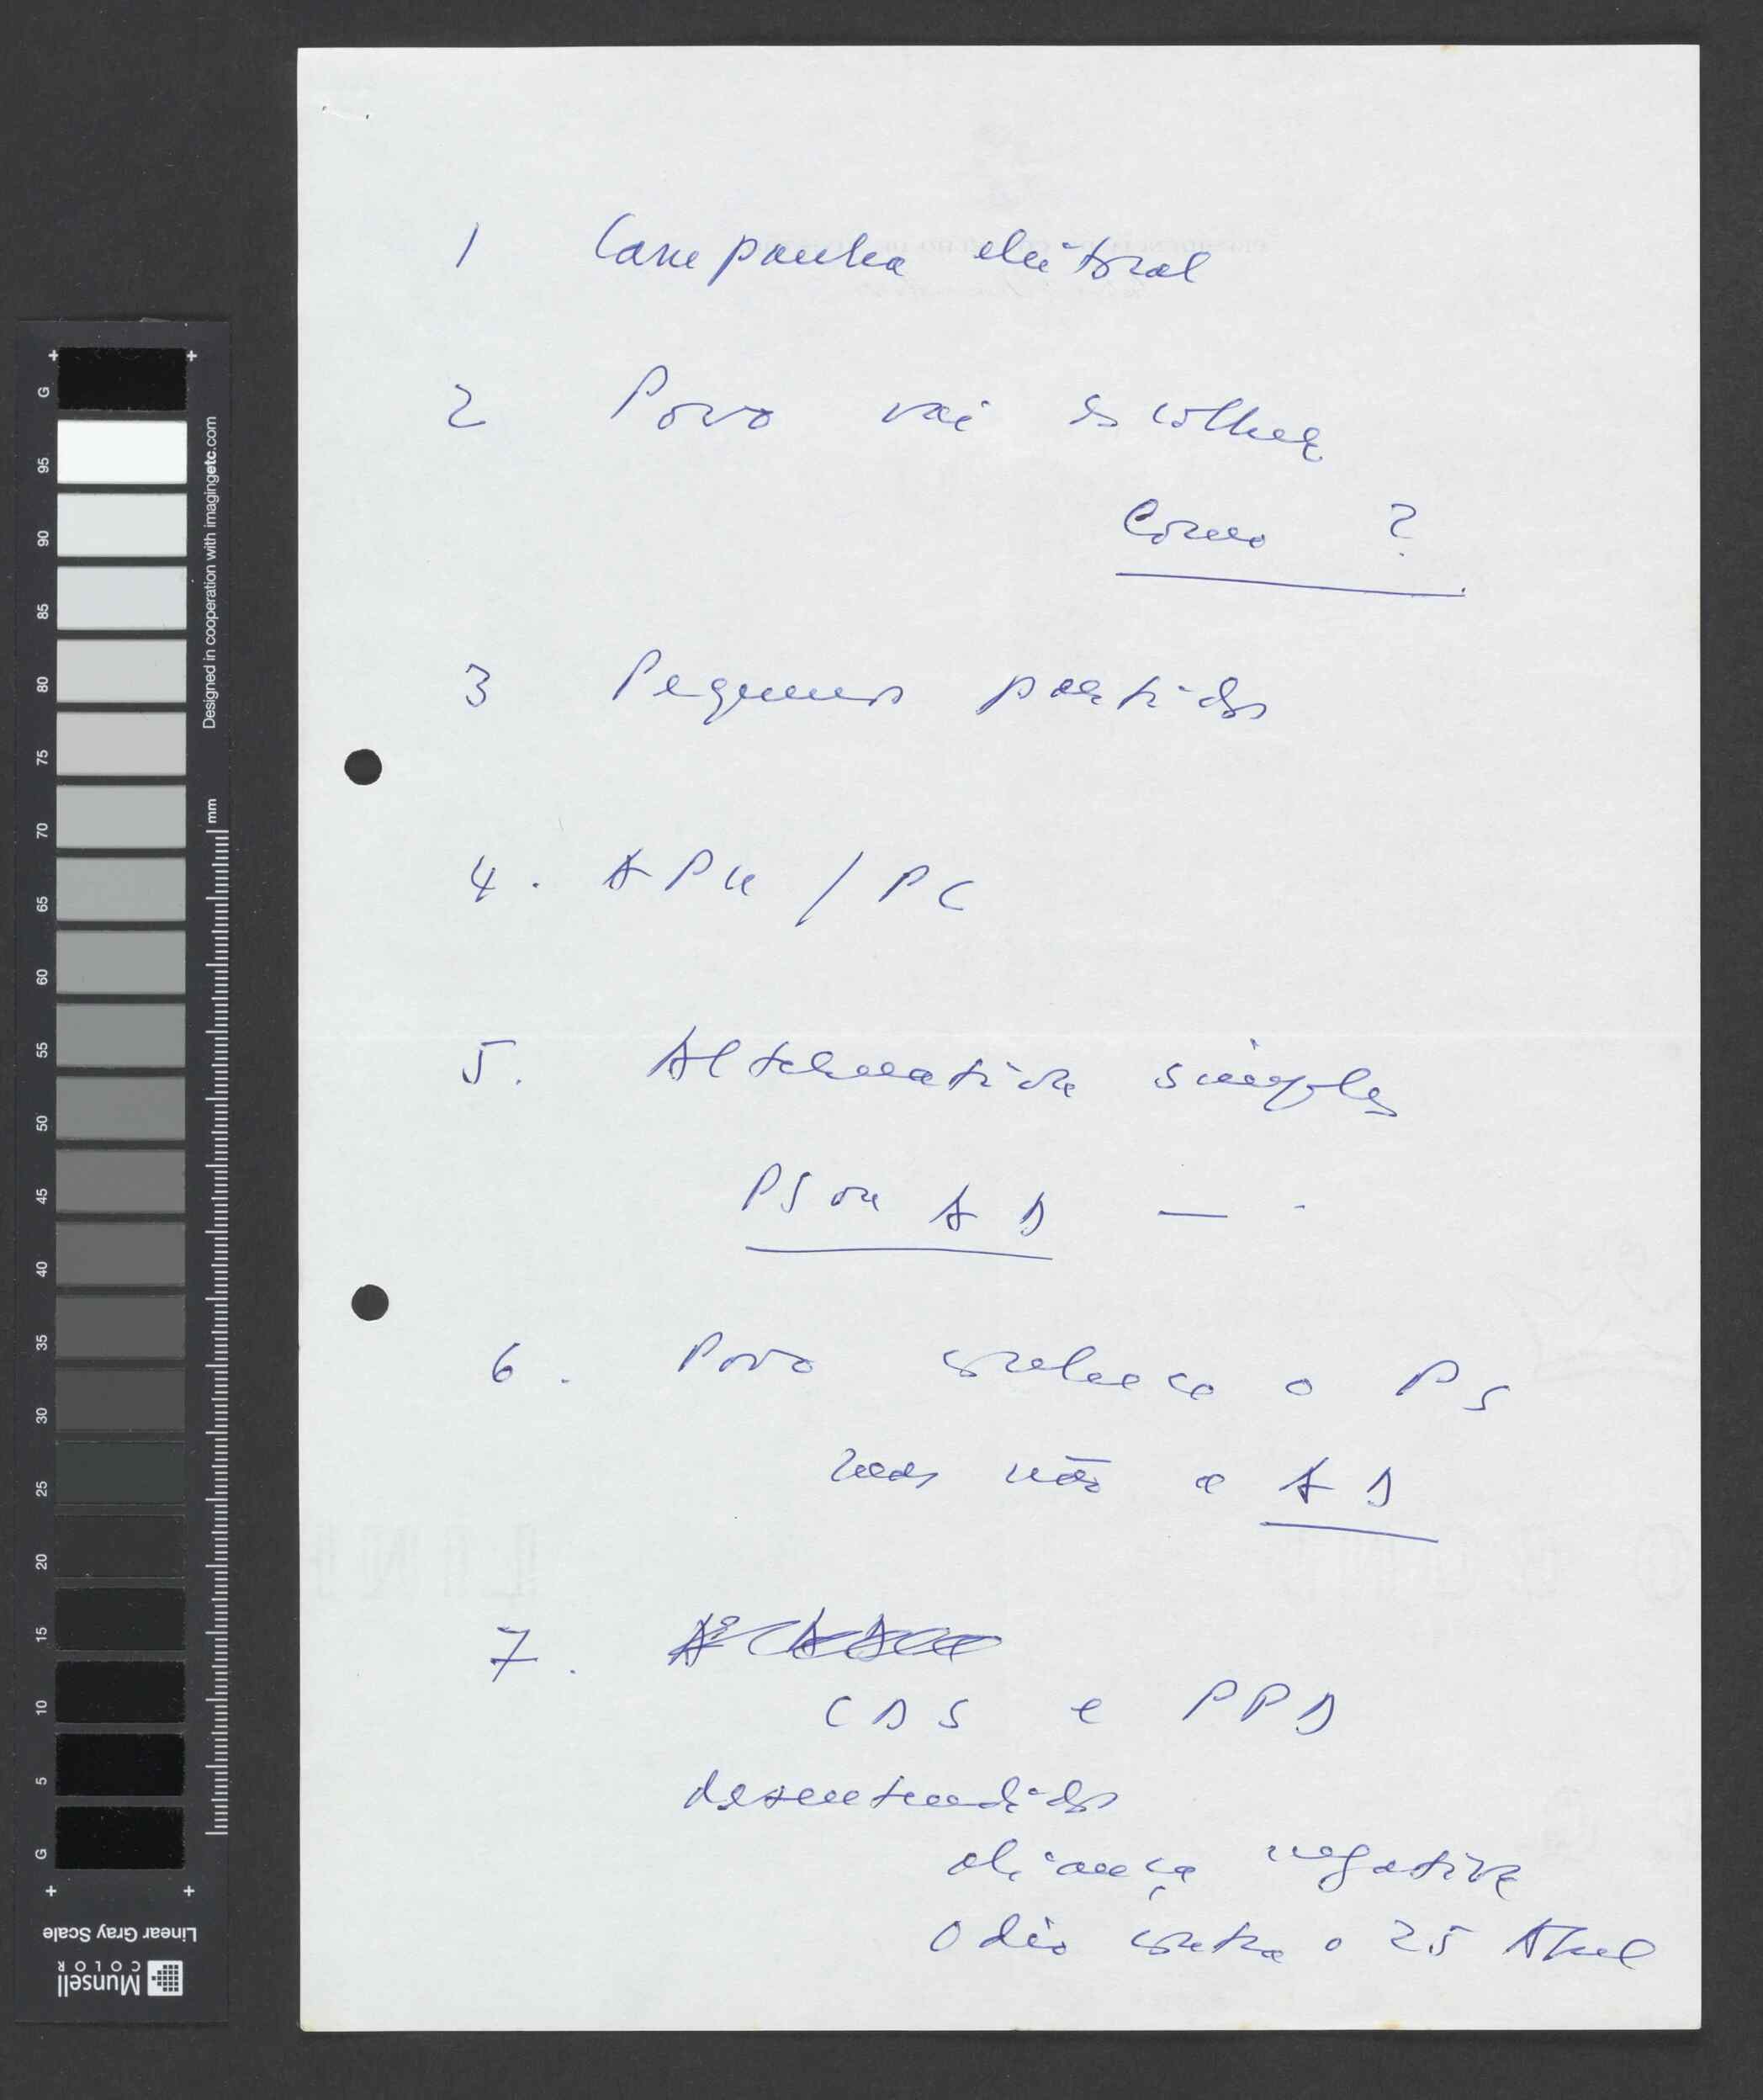 1 Campanha eleitoral
2 Povo vai escolher
Como ?
3 Pequenos partidos
4. APU / PC
5. Alternativa simples
PS ou AD — .
6. Povo conhece o PS
mas não a AD
7.
CDS e PPD
desentendidos
aliança negativa
Odio contra o 25 Abril
G 95 90 85 80 75 70 65 60 55 50 45 40 35 30 25 20 15 10 5 G
Designed in cooperation with imagingetc.com
mm
Linear Gray Scale
Munsell
COLOR